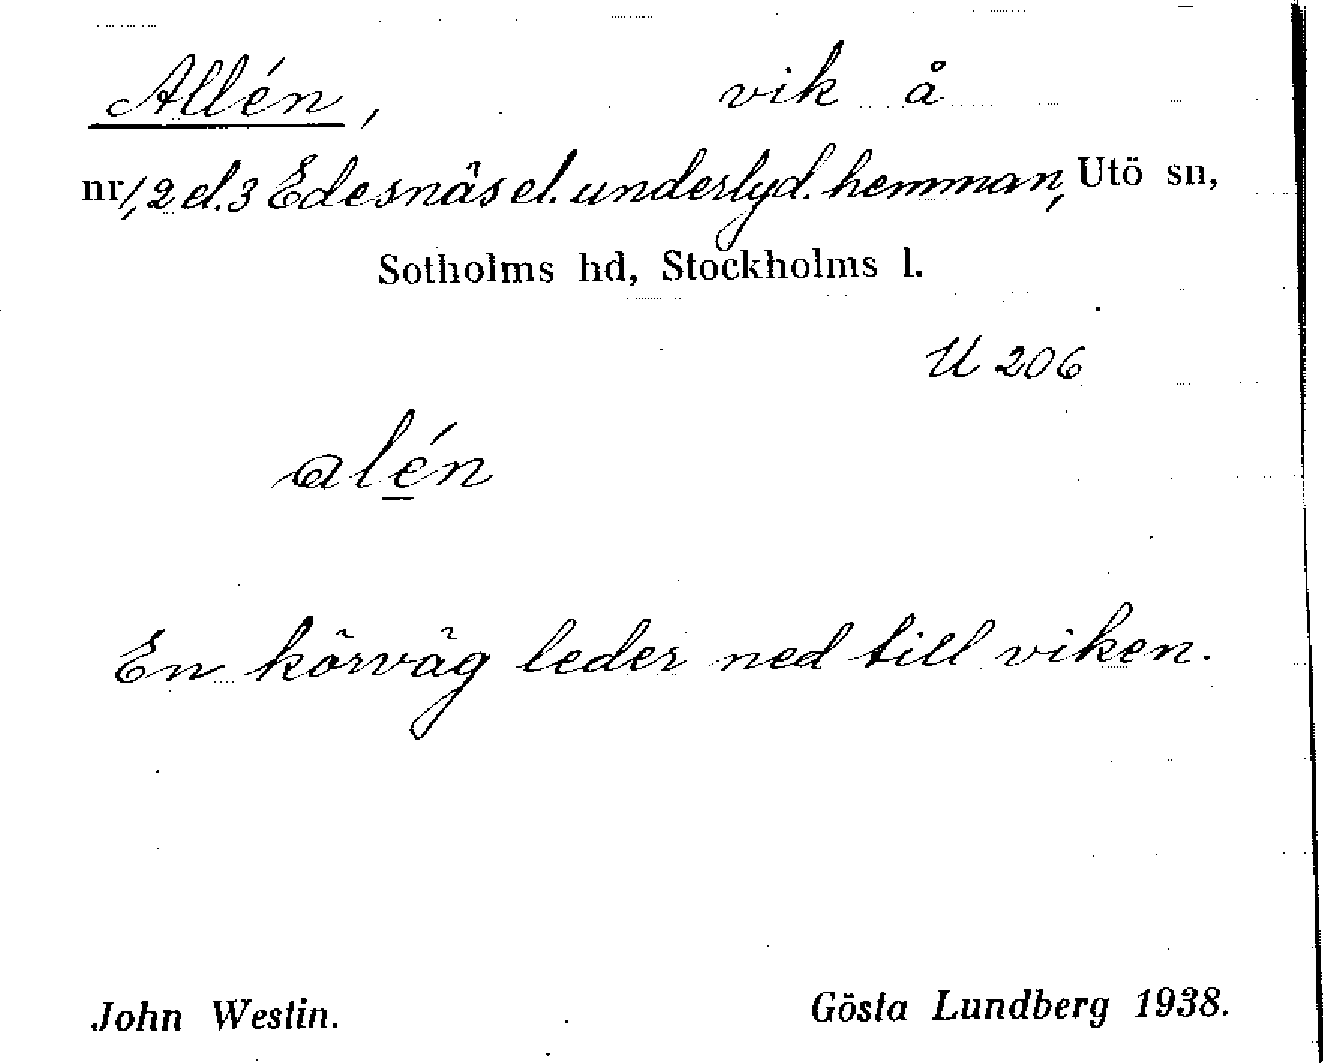 Allén, vik å
nr 1, 2 el. 3 Edesnäs el. underlyd. hemman, Utö sn,
Sotholms hd, Stockholms l.
U 206
alén
En körväg leder ned till viken.
John Westin. Gösta Lundberg 1938.